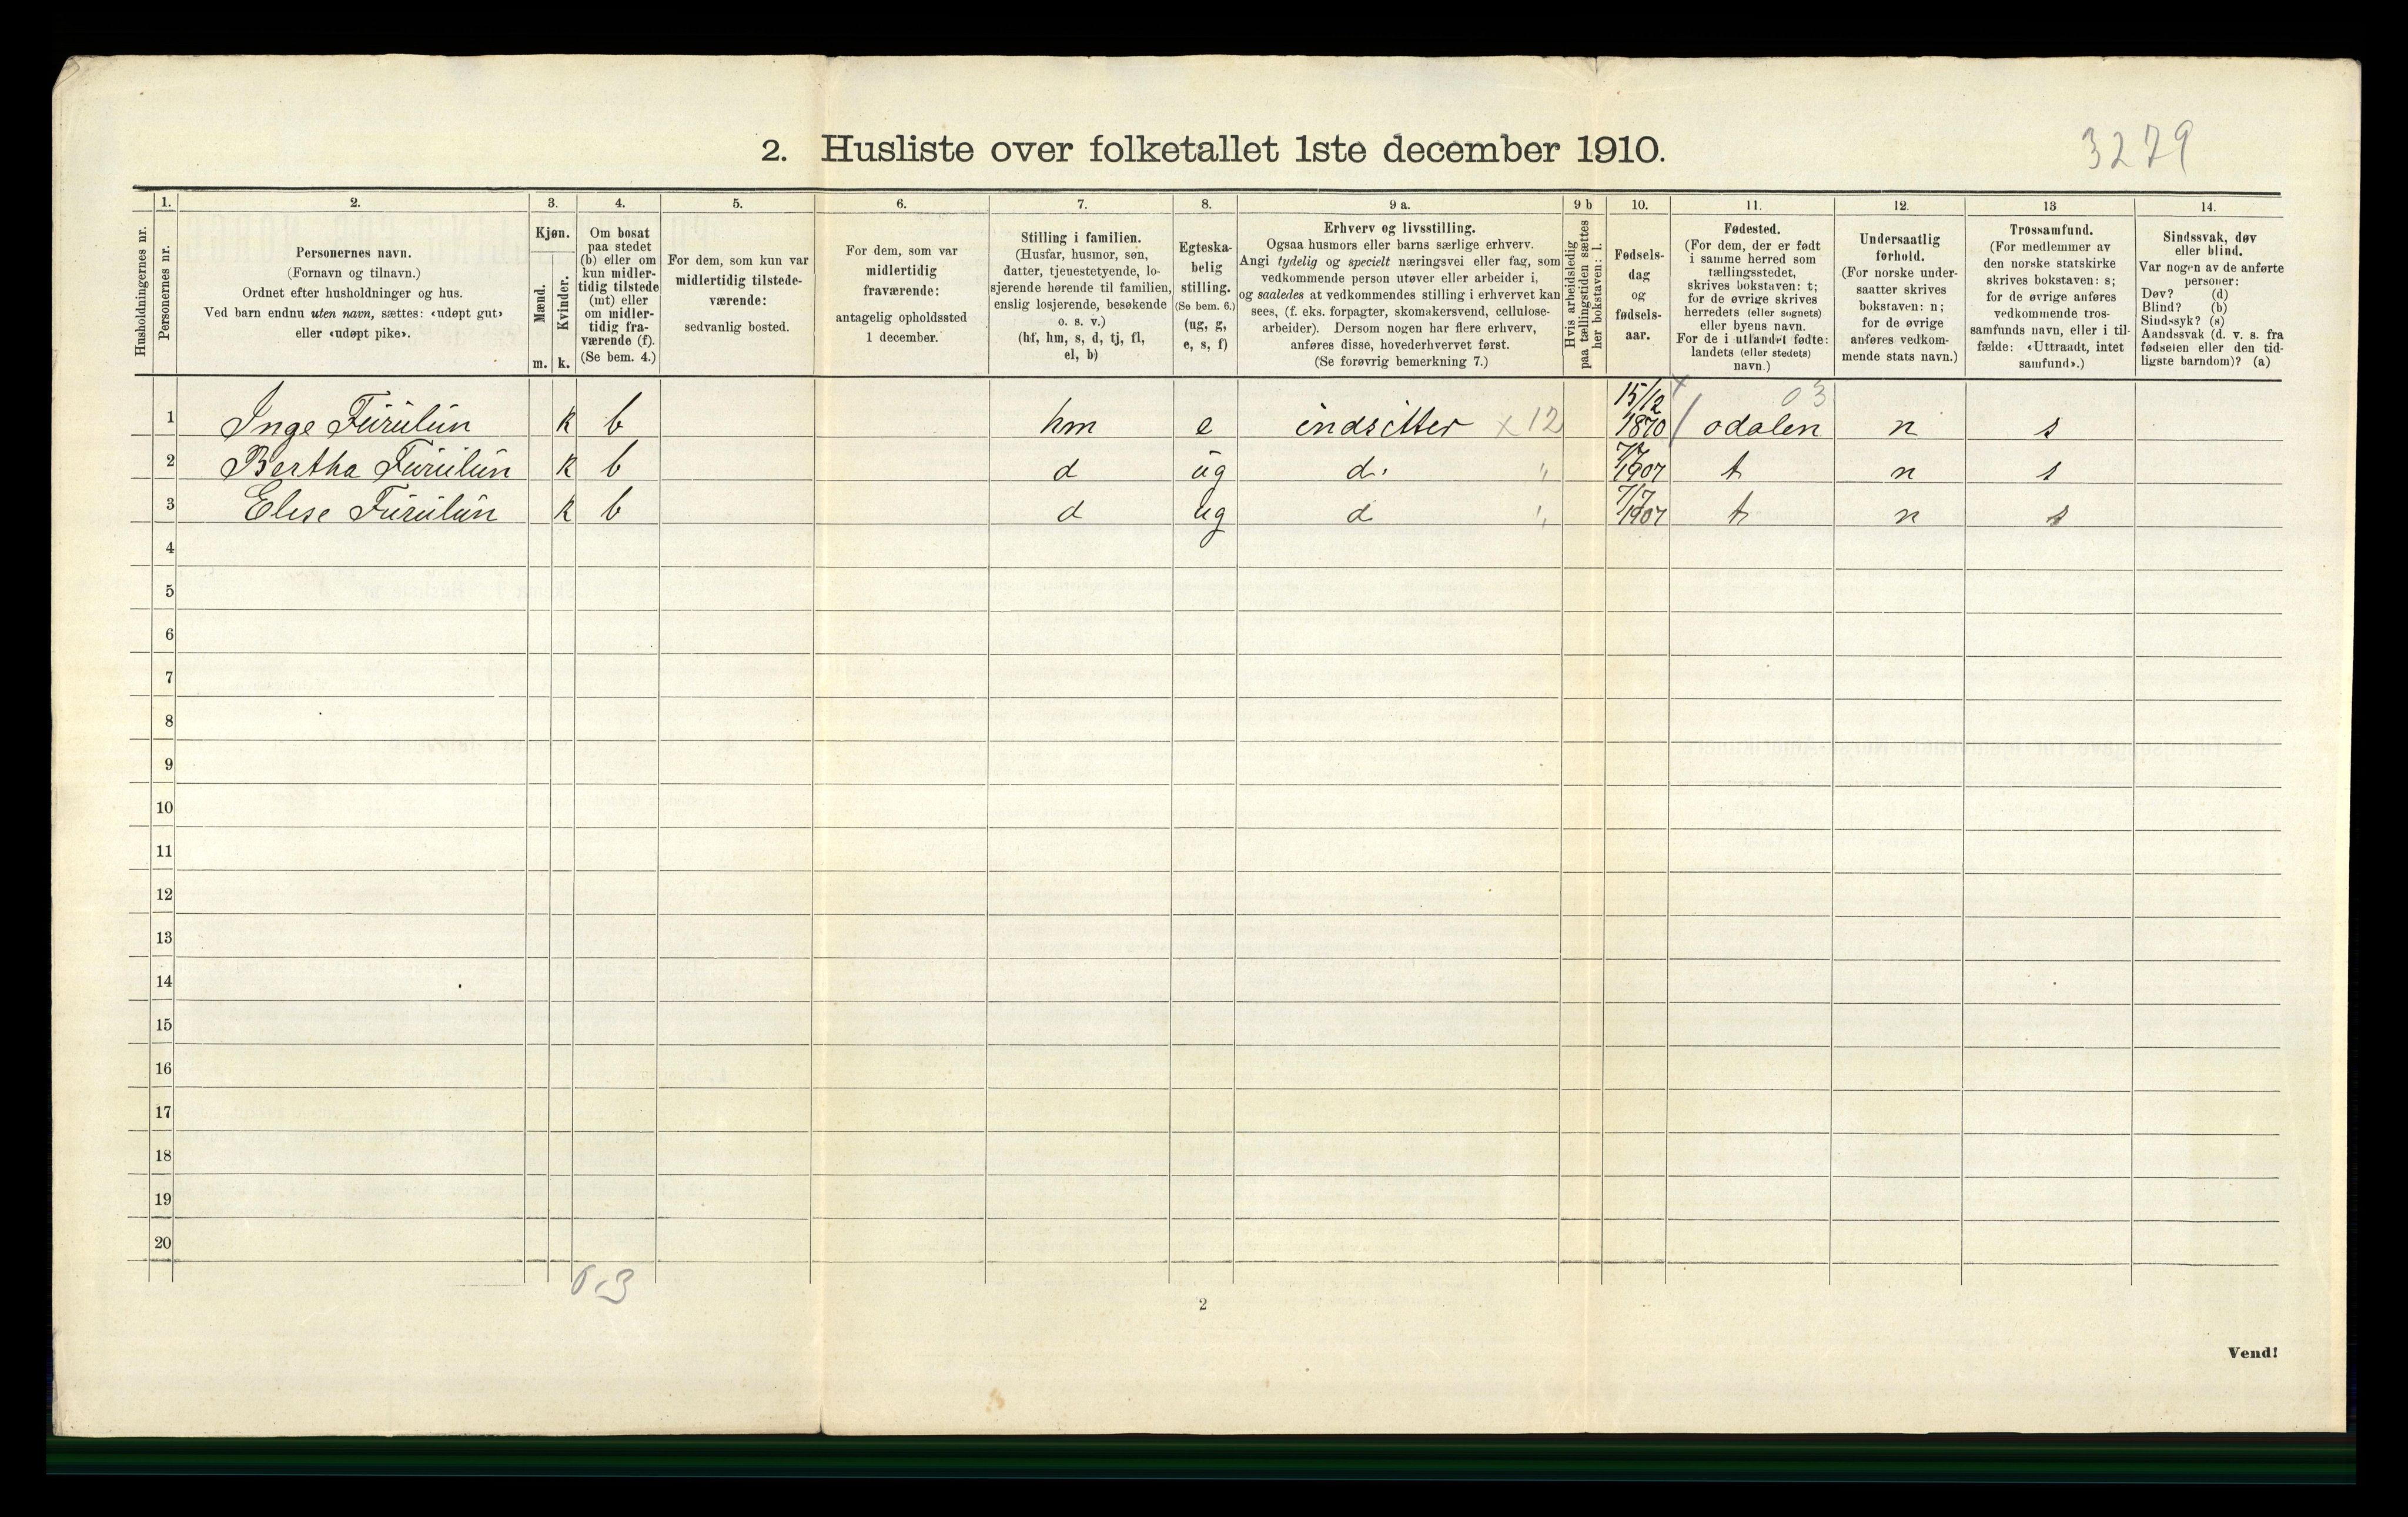 2. Husliste over folketallet 1ste december 1910.
3279
Husholdningernes nr.
1.
Personernes nr.
2.
Personernes navn.
(Fornavn og tilnavn.)
Ordnet efter husholdninger og hus.
Ved barn endnu uten navn, sættes: «udøpt gut»
eller «udøpt pike».
3.
Kjøn.
Mænd.
Kvinder.
m. k.
4.
Om bosat
paa stedet
(b) eller om
kun midler-
tidig tilstede
(mt) eller
om midler-
tidig fra-
værende (f).
(Se bem. 4.)
5.
For dem, som kun var
midlertidig tilstede-
værende:
sedvanlig bosted.
6.
For dem, som var
midlertidig
fraværende:
antagelig opholdssted
1 december.
7.
Stilling i familien.
(Husfar, husmor, søn,
datter, tjenestetyende, lo-
sjerende hørende til familien,
enslig losjerende, besøkende
o. s. v.)
(hf, hm, s, d, tj, fl,
el, b)
8.
Egteska-
belig
stilling.
(Se bem. 6.)
(ug, g,
e, s, f)
9 a.
Erhverv og livsstilling.
Ogsaa husmors eller barns særlige erhverv.
Angi tydelig og specielt næringsvei eller fag, som
vedkommende person utøver eller arbeider i,
og saaledes at vedkommendes stilling i erhvervet kan
sees, (f. eks. forpagter, skomakersvend, cellulose-
arbeider). Dersom nogen har flere erhverv,
anføres disse, hovederhvervet først.
(Se forøvrig bemerkning 7.)
9 b
Hvis arbeidsledig
paa tællingstiden sættes
her bokstaven: l.
10.
Fødsels-
dag
og
fødsels-
aar.
11.
Fødested.
(For dem, der er født
i samme herred som
tællingsstedet,
skrives bokstaven: t;
for de øvrige skrives
herredets (eller sognets)
eller byens navn.
For de i utlandet fødte:
landets (eller stedets)
navn.)
12.
Undersaatlig
forhold.
(For norske under-
saatter skrives
bokstaven: n;
for de øvrige
anføres vedkom-
mende stats navn.)
13
Trossamfund.
(For medlemmer av
den norske statskirke
skrives bokstaven: s;
for de øvrige anføres
vedkommende tros-
samfunds navn, eller i til-
fælde: «Uttraadt, intet
samfund».)
14.
Sindssvak, døv
eller blind.
Var nogen av de anførte
personer:
Døv? (d)
Blind? (b)
Sindssyk? (s)
Aandssvak (d. v. s. fra
fødselen eller den tid-
ligste barndom)? (a)
1 Inge Furulun k b hm e indsitter x 12 15/12 1870 odalen 03 n s
2 Bertha Furulun k b d ug d. " 1907 t n s
3 Elise Furulun k b d ug d " 1907 t n s
4
5
6
7
8
9
10
11
12
13
14
15
16
17
18
19
20
2
Vend!